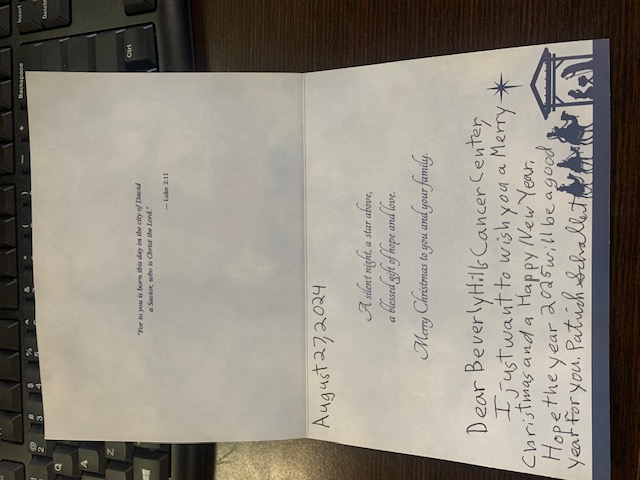 "For to you is born this day in the city of David
a Savior, who is Christ the Lord."
— Luke 2:11
August 27, 2024
A silent night, a star above,
a blessed gift of hope and love.
Merry Christmas to you and your family.
Dear Beverly Hills Cancer Center,
I just want to wish you a Merry
Christmas and a Happy New Year.
Hope the year 2025 will be a good
year for you. Patrick Schallert
Backspace
Insert
Delete
Ctrl
Q
A
Z
W
S
X